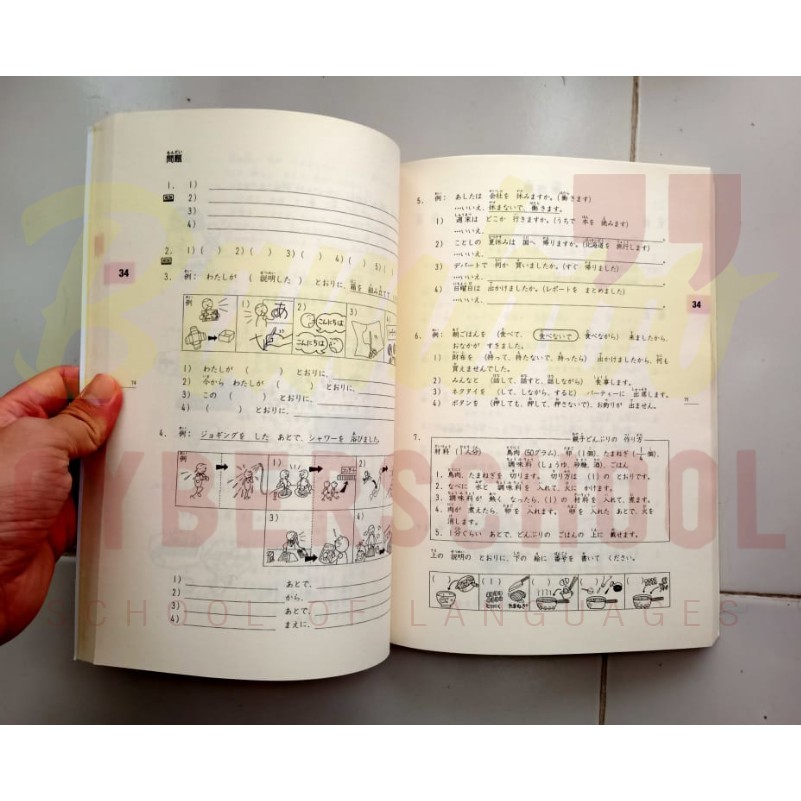 問題
1. 1)
2)
3)
4)
2. 1) ( ) 2) ( ) 3) ( ) 4) ( ) 5) ( )
3. 例: わたしが ( 説明した ) とおりに、箱を 組み立てて
例 1) あ 2) こんにちは こんにちは 3) 4)
1) わたしが ( ) とおりに、
2) 今から わたしが ( ) とおりに、
3) この ( ) とおりに、
4) ( ) とおりに、
4. 例: ジョギングを した あとで、シャワーを 浴びました
例 1) 2)
3)
1) あとで、
2) から、
3) あとで、
4) まえに、
34
5. 例: あしたは 会社を 休みますか。(働きます)
…いいえ、休まないで、働きます。
1) 週末は どこか 行きますか。(うちで 本を 読みます)
…いいえ、
2) ことしの 夏休みは 国へ 帰りますか。(北海道を 旅行します)
…いいえ、
3) デパートで 何か 買いましたか。(すぐ 帰りました)
…いいえ、
4) 日曜日は 出かけましたか。(レポートを まとめました)
…いいえ、
34
6. 例: 朝ごはんを (食べて、 食べないで 食べながら) 来ましたから、
おなかが すきました。
1) 財布を (持って、持たないで、持ったら) 出かけましたから、何も
買えませんでした。
2) みんなと (話して、話すと、話しながら) 食事します。
3) ネクタイを (して、しながら、すると) パーティーに 出席します。
4) ボタンを (押しても、押して、押さないで)、お釣りが 出ません。
7.
親子どんぶりの 作り方
材料 (1人分) 鳥肉 (50グラム)、卵 (1個)、たまねぎ (1/4個)、
調味料 (しょうゆ、砂糖、酒)、ごはん
1. 鳥肉、たまねぎを 切ります。 切り方は (1) の とおりです。
2. なべに 水と 調味料を 入れて、火に かけます。
3. 調味料が 熱く なったら、(1) の 材料を 入れて、煮ます。
4. 肉が 煮えたら、卵を 入れます。卵を 入れた あとで、火を
消します。
5. 1分ぐらい あとで、どんぶりの ごはんの 上に 載せます。
上の 説明の とおりに、下の 絵に 番号を 書いて ください。
( ) (1) ( ) ( ) ( )
CYBERSCHOOL
SCHOOL OF LANGUAGES